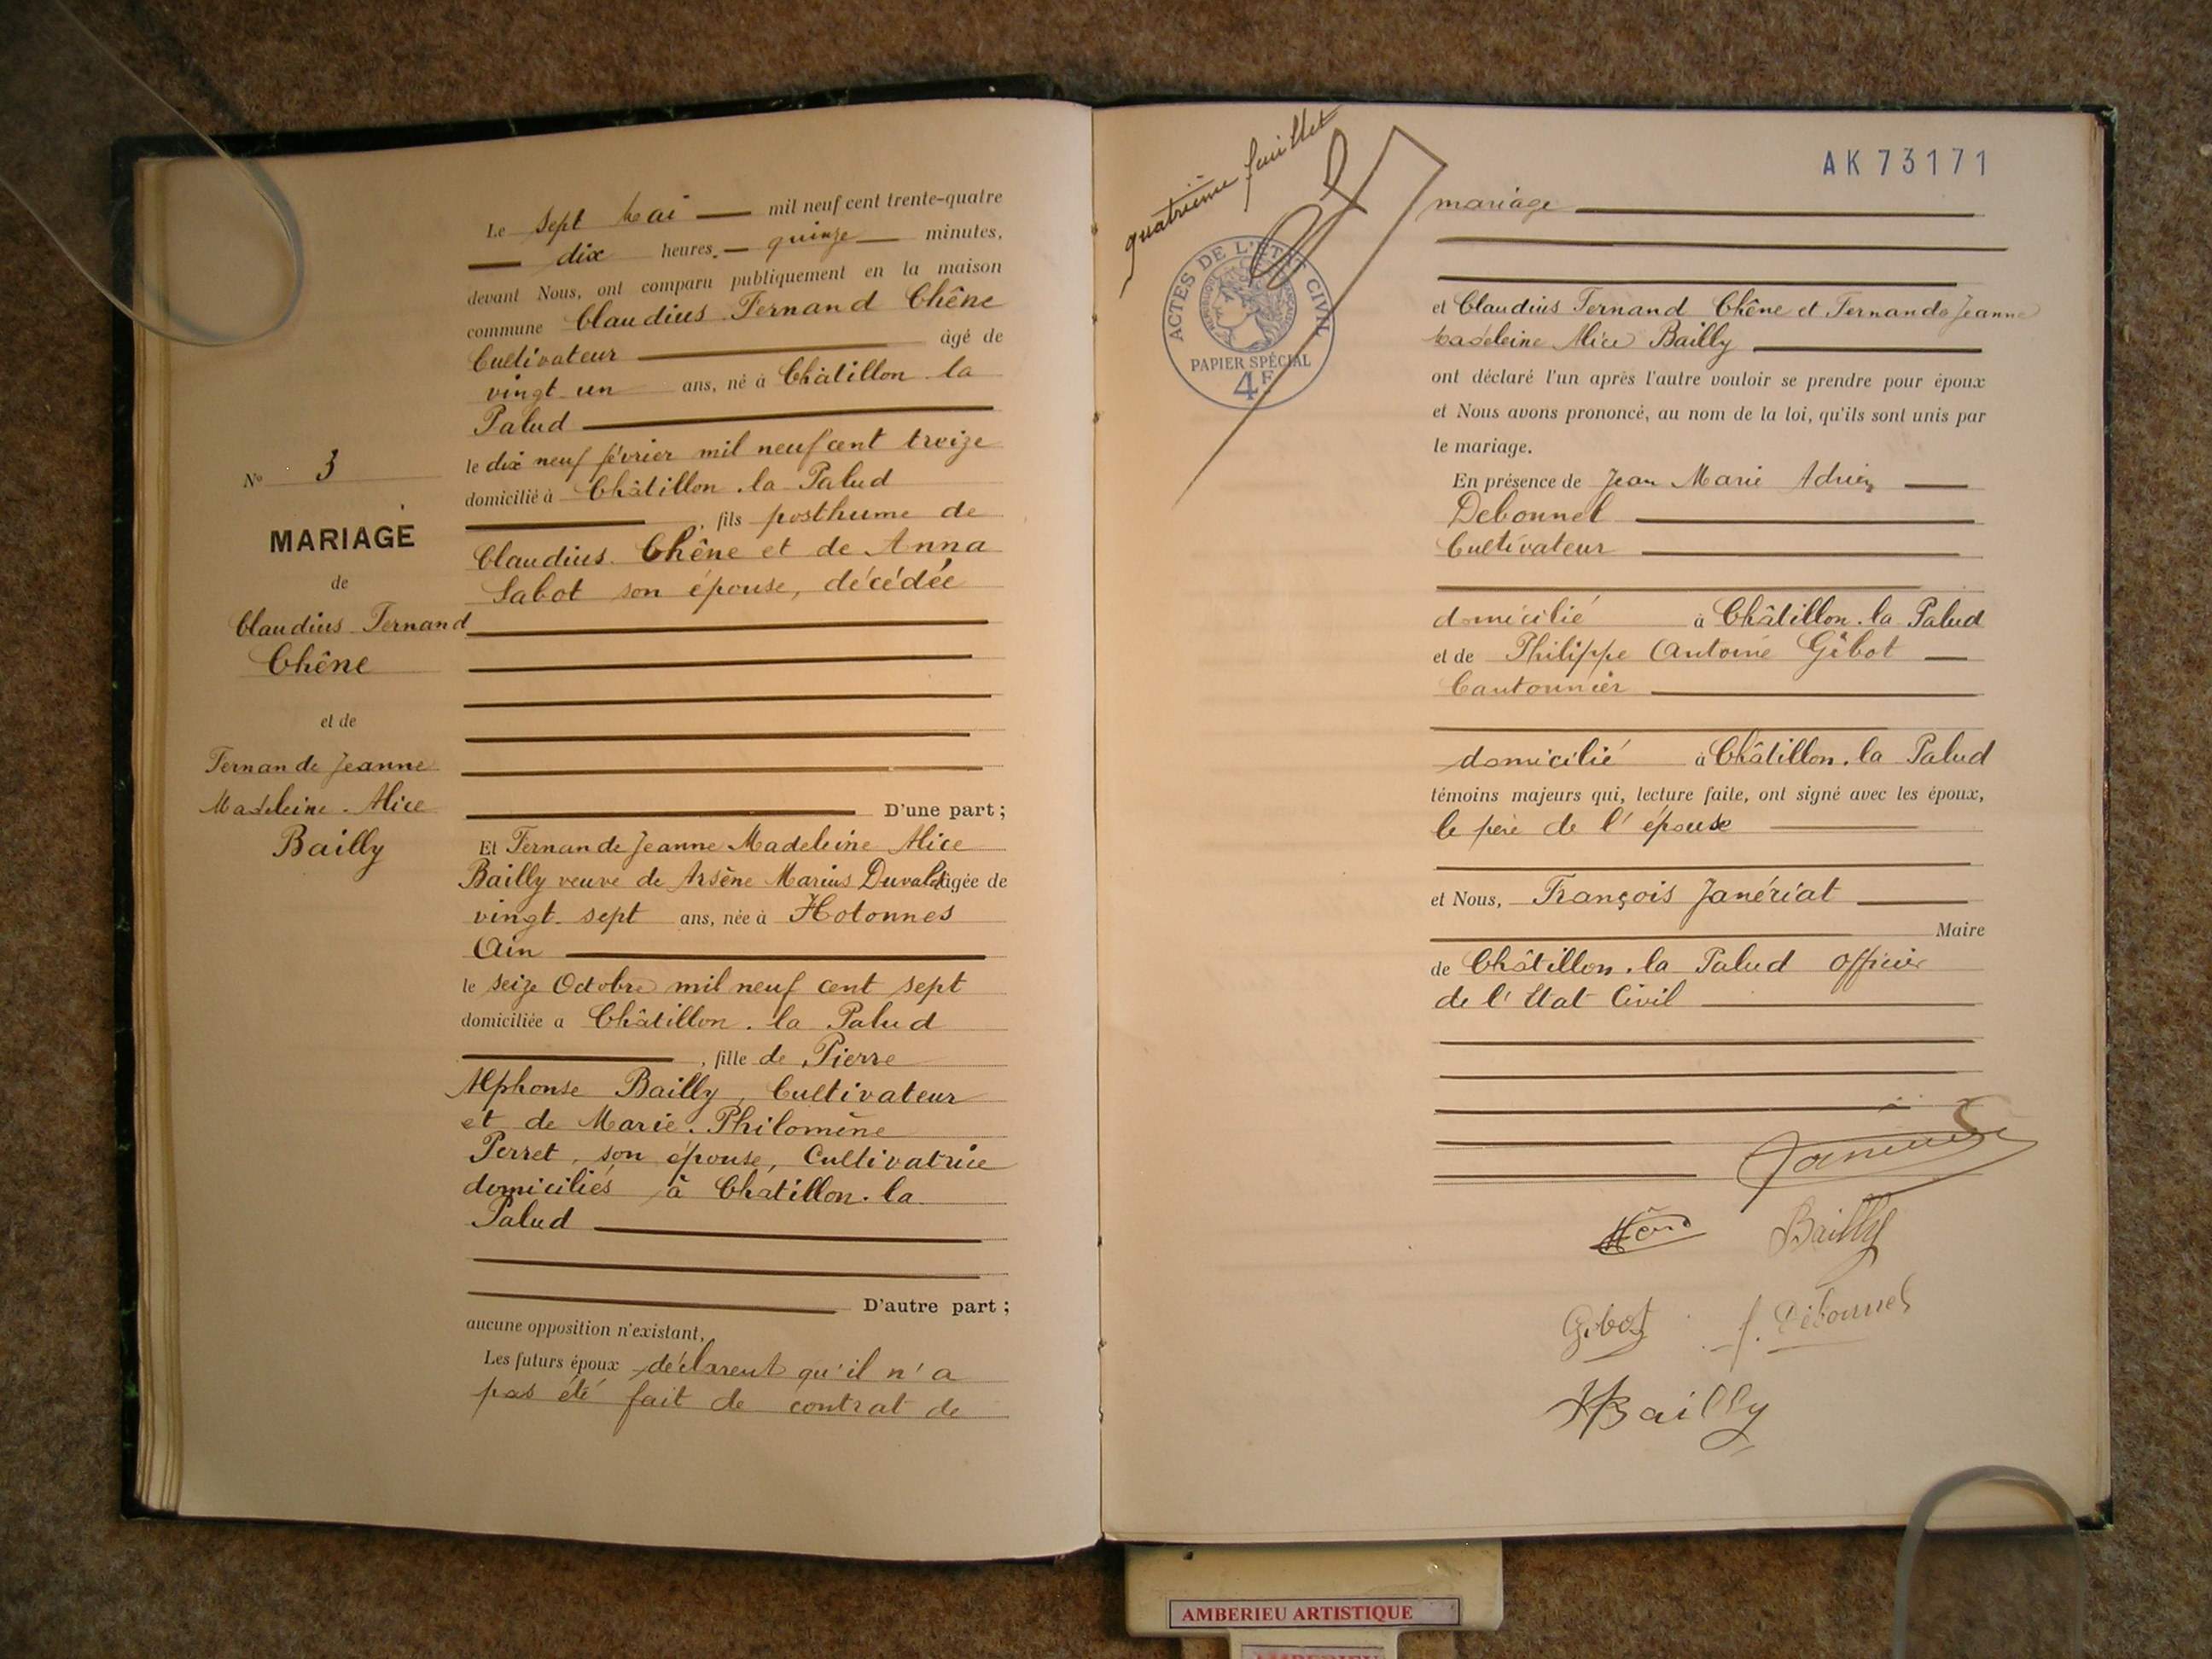 N° 3
MARIAGE
de
Claudius Fernand
Chêne
et de
Fernande Jeanne
Madeleine Alice
Bailly
Le sept Mai mil neuf cent trente-quatre
dix heures, quinze minutes,
devant Nous, ont comparu publiquement en la maison
commune Claudius Fernand Chêne
Cultivateur âgé de
vingt un ans, né à Châtillon la
Palud
le dix neuf février mil neuf cent treize
domicilié à Châtillon la Palud
, fils posthume de
Claudius Chêne et de Anna
Sabot son épouse, décédée
D'une part;
Et Fernande Jeanne Madeleine Alice
Bailly veuve de Arsène Marius âgée de
vingt sept ans, née à Hotonnes
Ain
le seize Octobre mil neuf cent sept
domiciliée a Châtillon la Palud
, fille de Pierre
Alphonse Bailly, Cultivateur
et de Marie Philomène
Perret, son épouse, Cultivatrice
domiciliés à Chatillon la
Palud
D'autre part;
aucune opposition n'existant,
Les futurs époux déclarent qu'il n'a
pas été fait de contrat de
quatrième feuillet
ACTES DE L'ÉTAT CIVIL
PAPIER SPÉCIAL
4F
AK 73171
mariage
et Claudius Fernand Chêne et Fernande Jeanne
Madeleine Alice Bailly
ont déclaré l'un après l'autre vouloir se prendre pour époux
et Nous avons prononcé, au nom de la loi, qu'ils sont unis par
le mariage.
En présence de Jean Marie Adrien
Debonnel
Cultivateur
domicilié à Châtillon la Palud
et de Philippe Antoine Gibot
Cantonnier
domicilié à Châtillon la Palud
témoins majeurs qui, lecture faite, ont signé avec les époux,
le père de l'épouse
et Nous, François Janériat
Maire
de Châtillon la Palud Officier
de l'Etat Civil
Bailly
Gibot
J. Debonnel
Bailly
AMBERIEU ARTISTIQUE
AMBERIEU